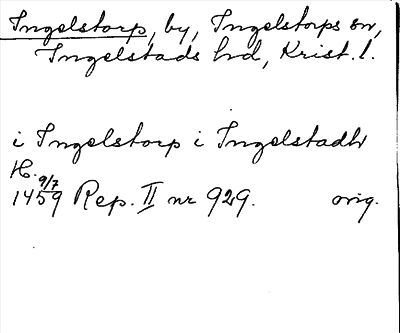 Ingelstorp, by, Ingelstorps sn,
Ingelstads hd, Krist. l.
i Ingelstorp i Ingelstadh
H.
9/7
1459 Rep. II nr 929. orig.